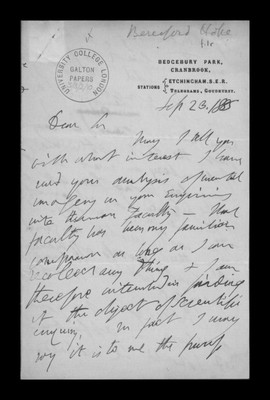 Beresford Hope
UNIVERSITY COLLEGE LONDON
GALTON PAPERS
BEDGEBURY PARK,
CRANBROOK.
STATIONS ETCHINGHAM, S.E.R.
TELEGRAMS, GOUDHURST.
Sept 23.
Dear Sir
May I tell you
with what interest I have
read your analysis of mental
imagery in your Enquiries
into Human Faculty — that
faculty has been my familiar
companion as long as I can
recollect any thing & I am
therefore interested in finding
it the object of scientific
enquiry. In fact I may
say it is to me the